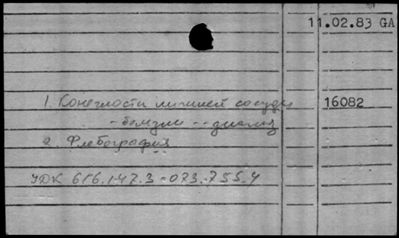 11.02.83 GA
1. Конечности нижней сосуды 16082
- болезни -- диагноз
2. Флебография
УДК 616.147.3-073.755.4